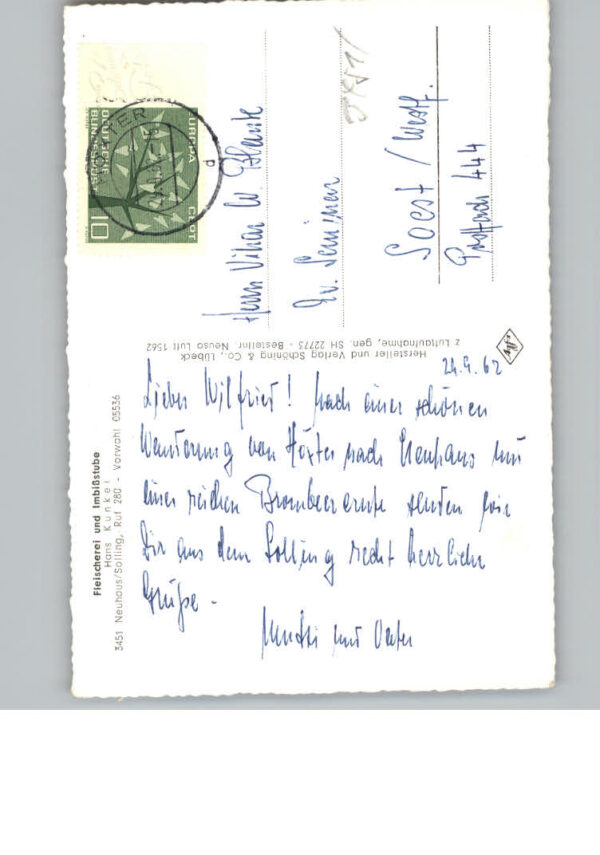 Fleischerei und Imbißstube
Hans Kunkel
3451 Neuhaus/Solling, Ruf 280 - Vorwahl 05536
24.9.62
Lieber Wilfried! Nach einer schönen
Wanderung von Höxter nach Neuhaus mit
einer reichen Brombeerernte senden wir
Dir aus dem Solling recht herzliche
Grüße -
Mutti und Vater
Hersteller und Verlag Schöning & Co., Lübeck
z Luftaufnahme, gen. SH 22773 - Bestellnr Neuso Luft 1562
Agfa
EUROPA
CEPT
DEUTSCHE
BUNDESPOST
10
HÖXTER
d
Herrn Vikar W. Blanke
Ev. Seminar
Soest / Westf.
Postfach 444